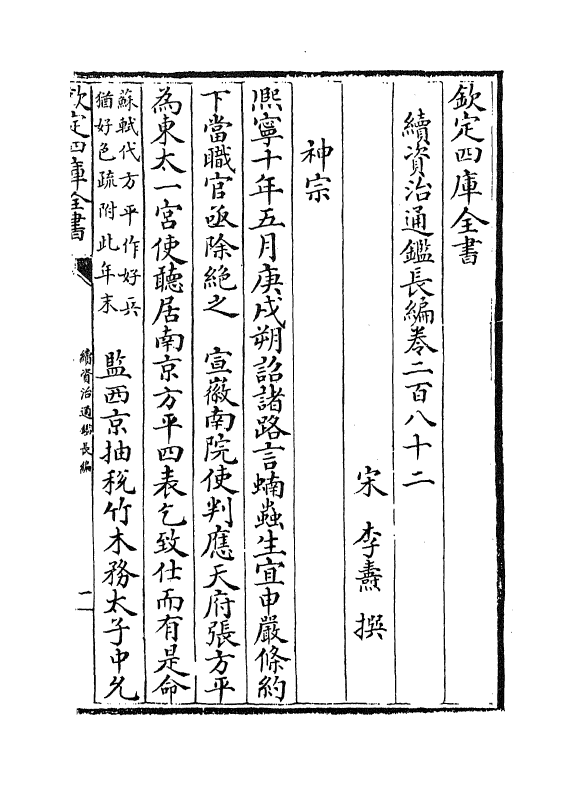 欽定四庫全書
續資治通鑑長編卷二百八十二
宋 李燾 撰
神宗
熙寧十年五月庚戌朔詔諸路言蝻蟲生宜申嚴條約
下當職官亟除絶之 宣徽南院使判應天府張方平
為東太一宮使聽居南京方平四表乞致仕而有是命
蘇軾代方平作好兵
猶好色疏附此年末
監西京抽税竹木務太子中允
欽定四庫全書
續資治通鑑長編
一